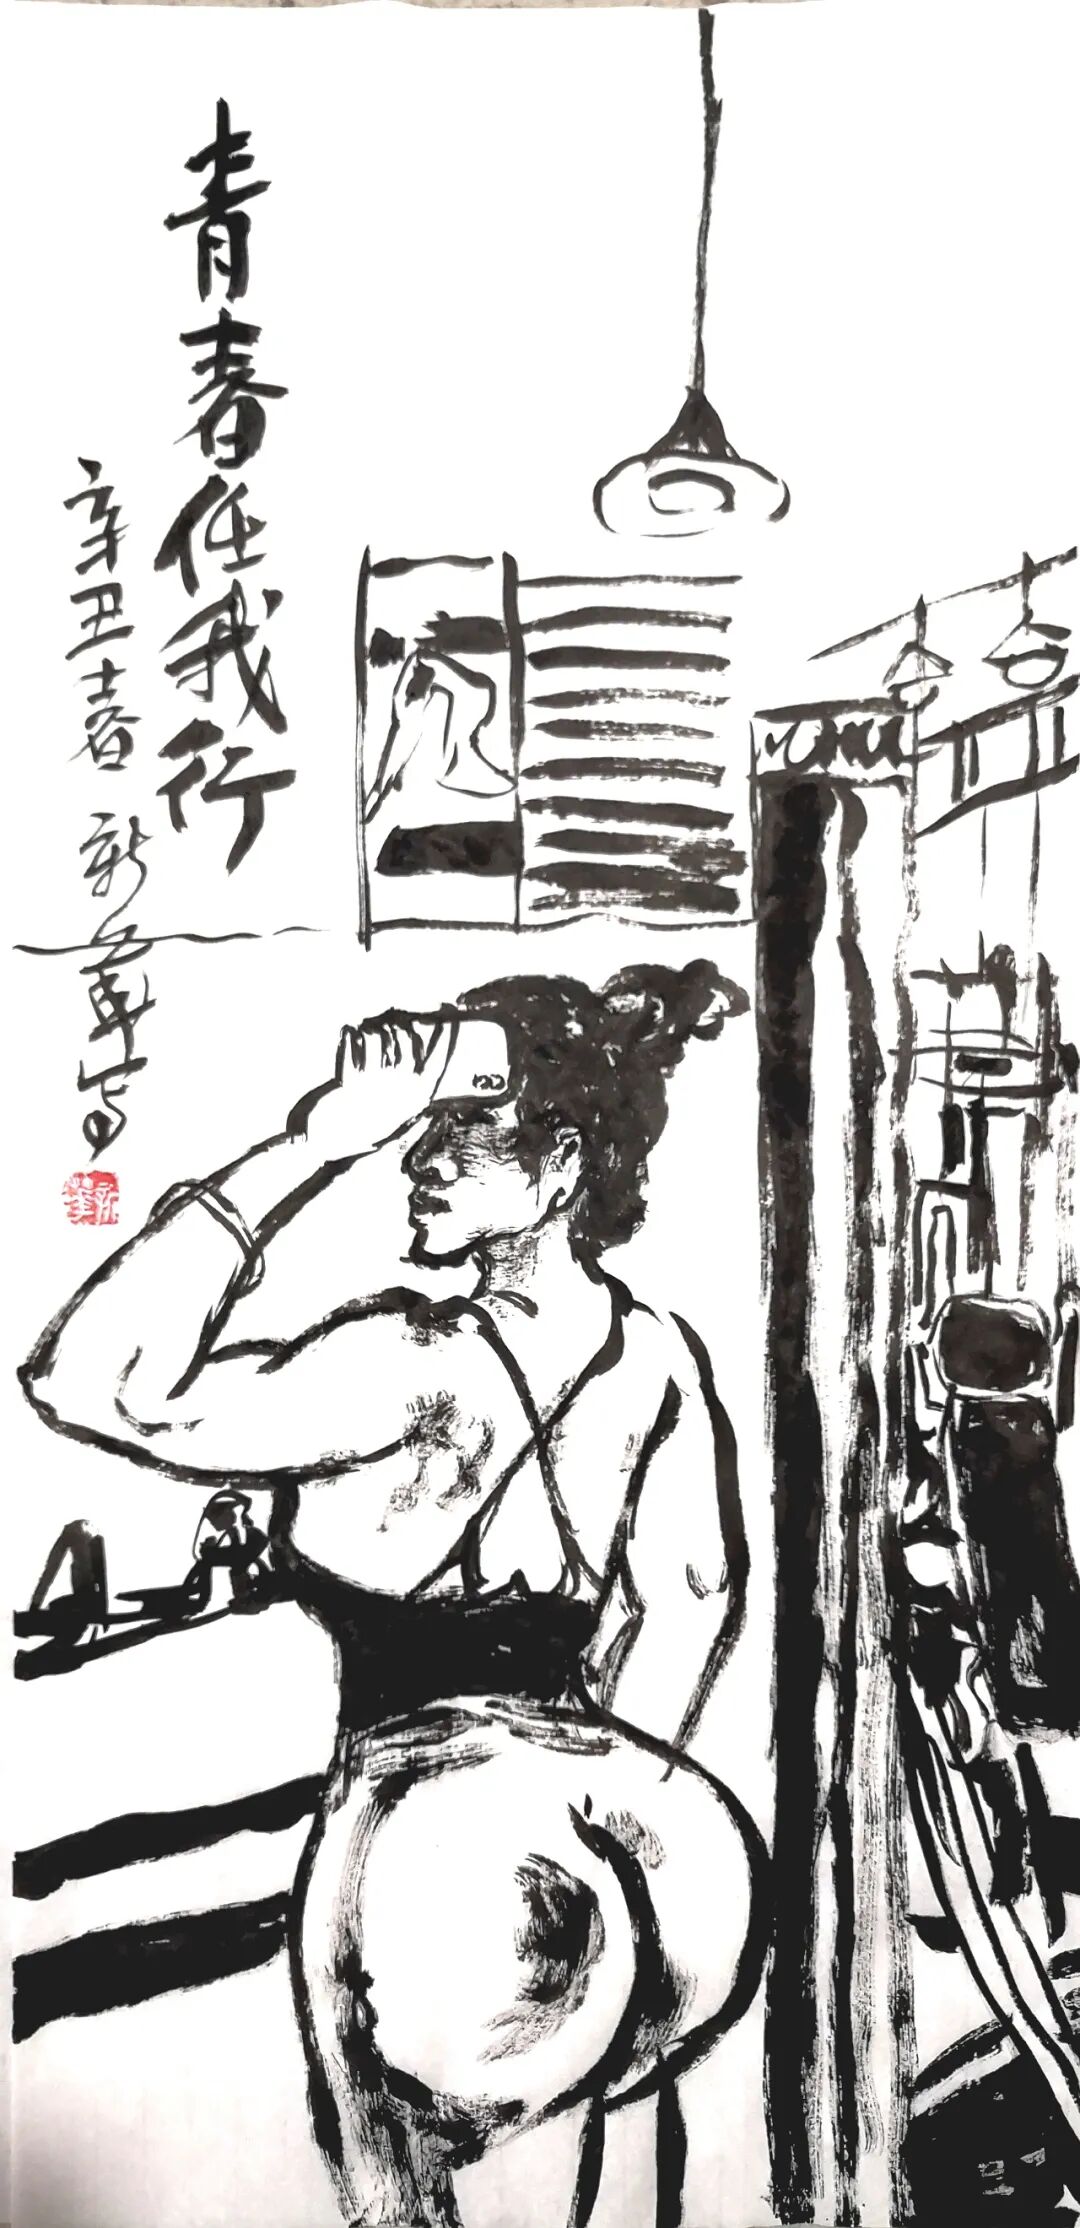 青春任我行
辛丑春 新華写